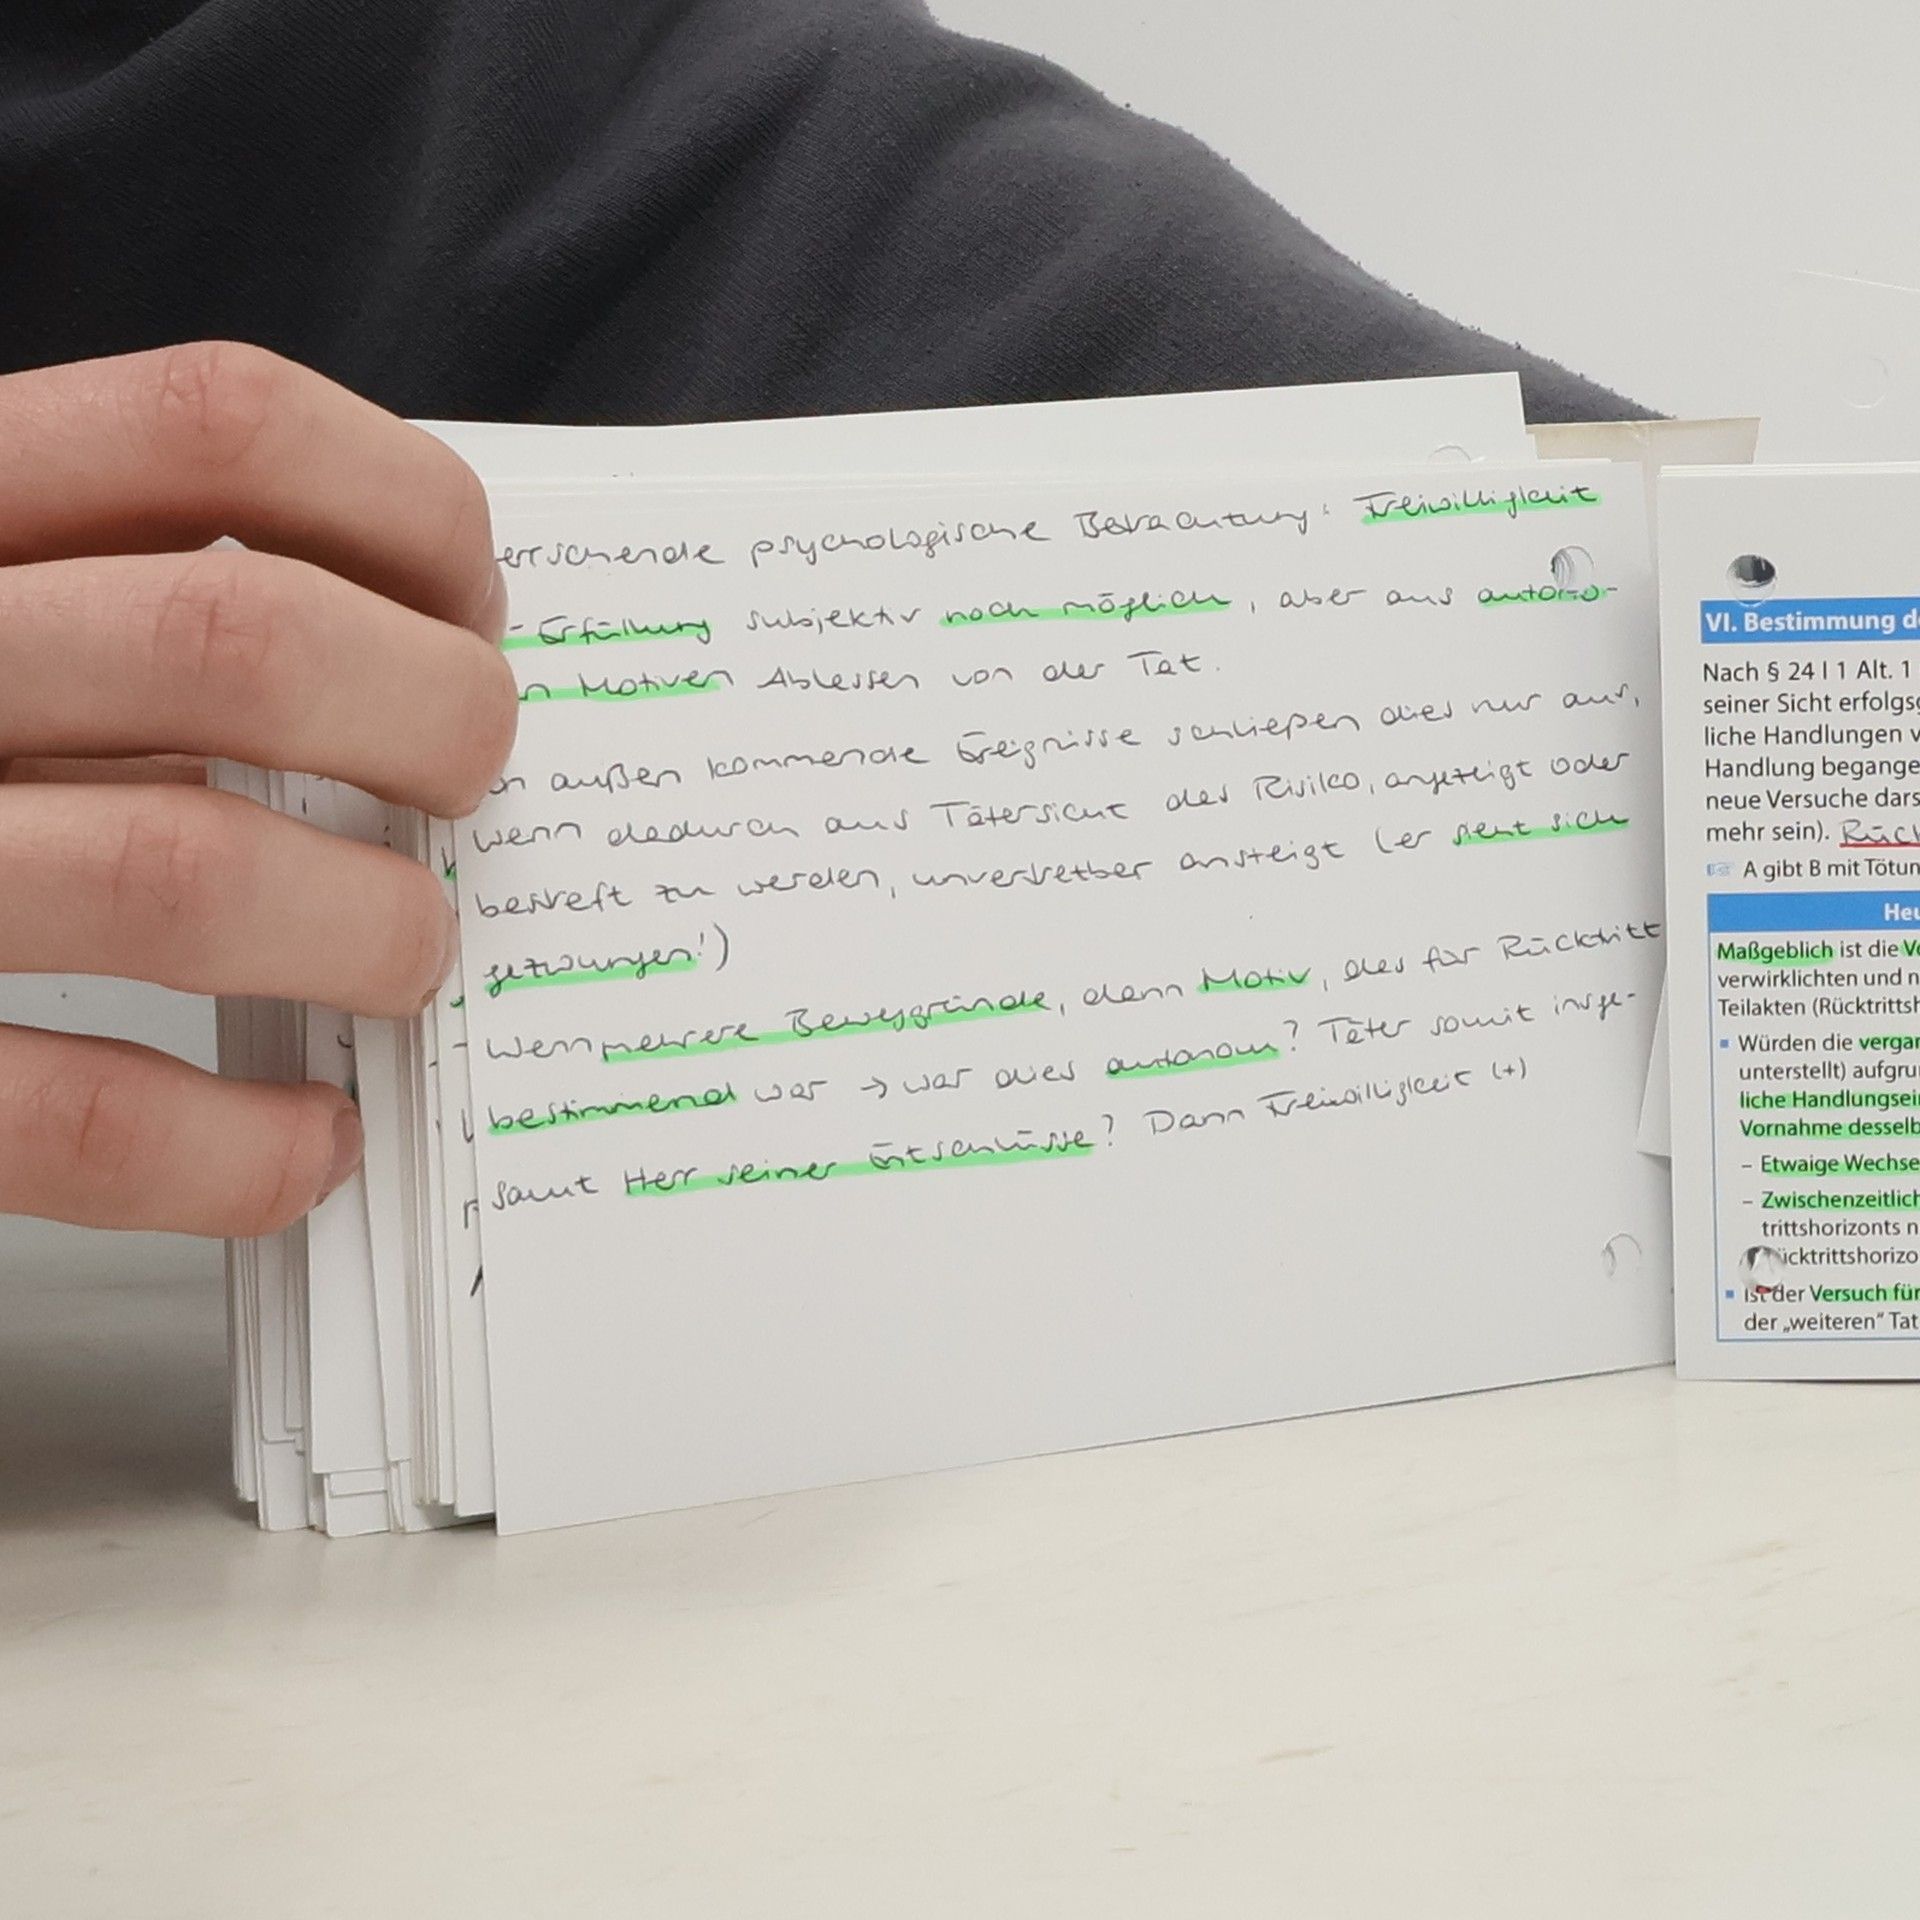 errschende psychologische Betrachtung: Freiwilligkeit
- Erfüllung subjektiv noch möglich, aber aus autono-
n Motiven Ablassen von der Tat.
on außen kommende Ereignisse schließen dies nur aus,
wenn dadurch aus Tätersicht das Risiko, angezeigt oder
bestraft zu werden, unvertretbar ansteigt (er sieht sich
gezwungen!)
Wenn mehrere Beweggründe, dann Motiv, das für Rücktritt
bestimmend war → war dies autonom? Täter somit insge-
samt Herr seiner Entschlüsse? Dann Freiwilligkeit (+)
VI. Bestimmung d
Nach § 24 I 1 Alt. 1
seiner Sicht erfolgs
liche Handlungen v
Handlung begange
neue Versuche dars
mehr sein). Rück
☞ A gibt B mit Tötun
Heu
Maßgeblich ist die Vo
verwirklichten und n
Teilakten (Rücktrittsh
▪ Würden die vergan
unterstellt) aufgru
liche Handlungsein
Vornahme desselb
– Etwaige Wechse
– Zwischenzeitlich
trittshorizonts n
ücktrittshorizo
▪ ist der Versuch für
der „weiteren“ Tat